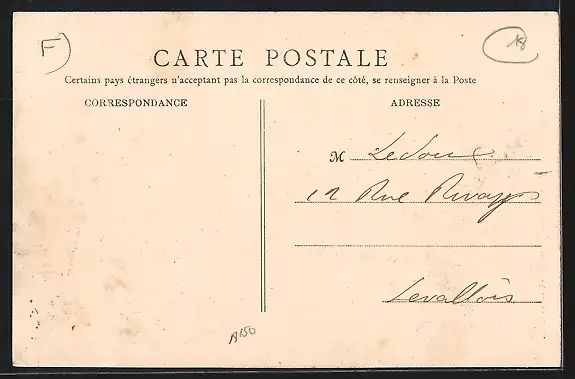 F)
18
CARTE POSTALE
Certains pays étrangers n'acceptant pas la correspondance de ce côté, se renseigner à la Poste
CORRESPONDANCE
ADRESSE
M Ledoux
12 Rue Rivay
Levallois
A150